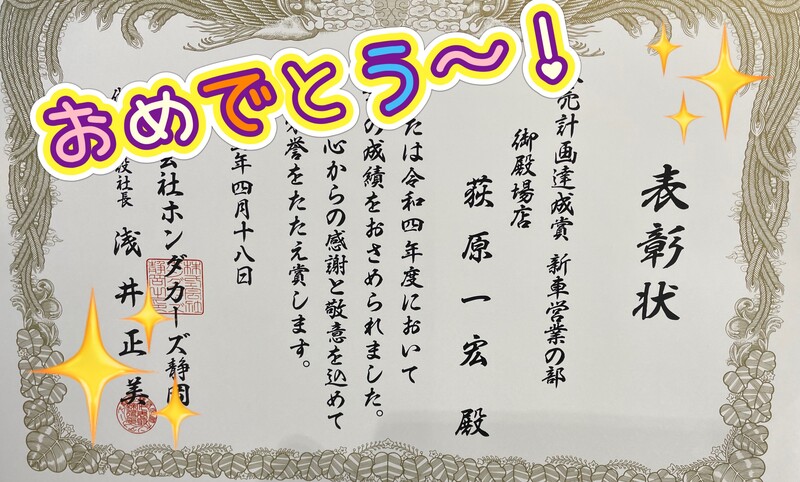 おめでとう〜!
表彰状
売計画達成賞 新車営業の部
御殿場店
荻原一宏殿
たは令和四年度において
の成績をおさめられました。
心からの感謝と敬意を込めて
誉をたたえ賞します。
年四月十八日
会社ホンダカーズ静岡
社長 浅井正美